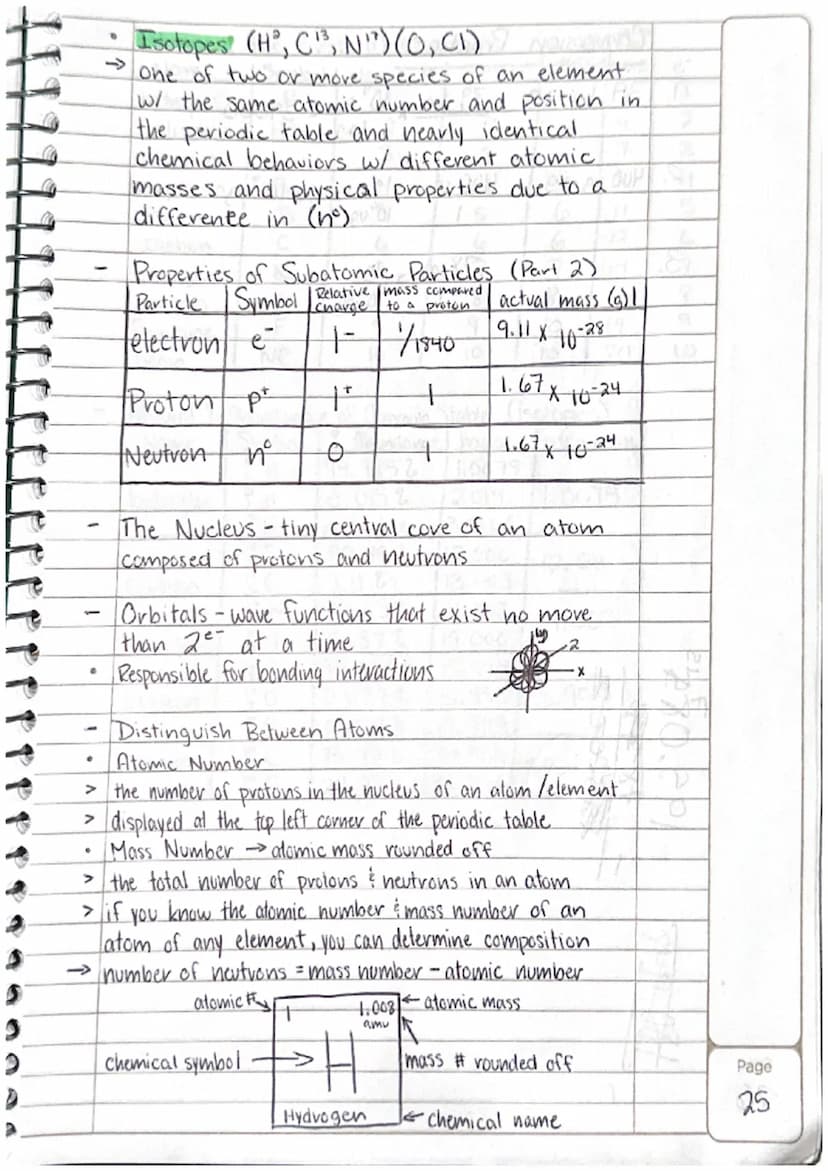 • Isotopes (H², C¹³, N¹⁷)(O, Cl)
→ one of two or more species of an element
w/ the same atomic number and position in
the periodic table and nearly identical
chemical behaviors w/ different atomic
masses and physical properties due to a
difference in (n⁰)
- Properties of Subatomic Particles (Part 2)
Particle | Symbol | Relative charge | mass compared to a proton | actual mass (g)
electron | e⁻ | 1- | 1/1840 | 9.11 x 10⁻²⁸
Proton | p⁺ | 1⁺ | 1 | 1.67 x 10⁻²⁴
Neutron | n⁰ | 0 | 1 | 1.67 x 10⁻²⁴
- The Nucleus - tiny central core of an atom
composed of protons and neutrons
- Orbitals - wave functions that exist no more
than 2e⁻ at a time
y
z
• Responsible for bonding interactions
x
- Distinguish Between Atoms
• Atomic Number
> the number of protons in the nucleus of an atom/element
> displayed at the top left corner of the periodic table
• Mass Number → atomic mass rounded off
> the total number of protons & neutrons in an atom
> if you know the atomic number & mass number of an
atom of any element, you can determine composition
→ number of neutrons = mass number - atomic number
atomic # 1 1.008 ← atomic mass
amu
chemical symbol → H mass # rounded off
Hydrogen ← chemical name
Page
25